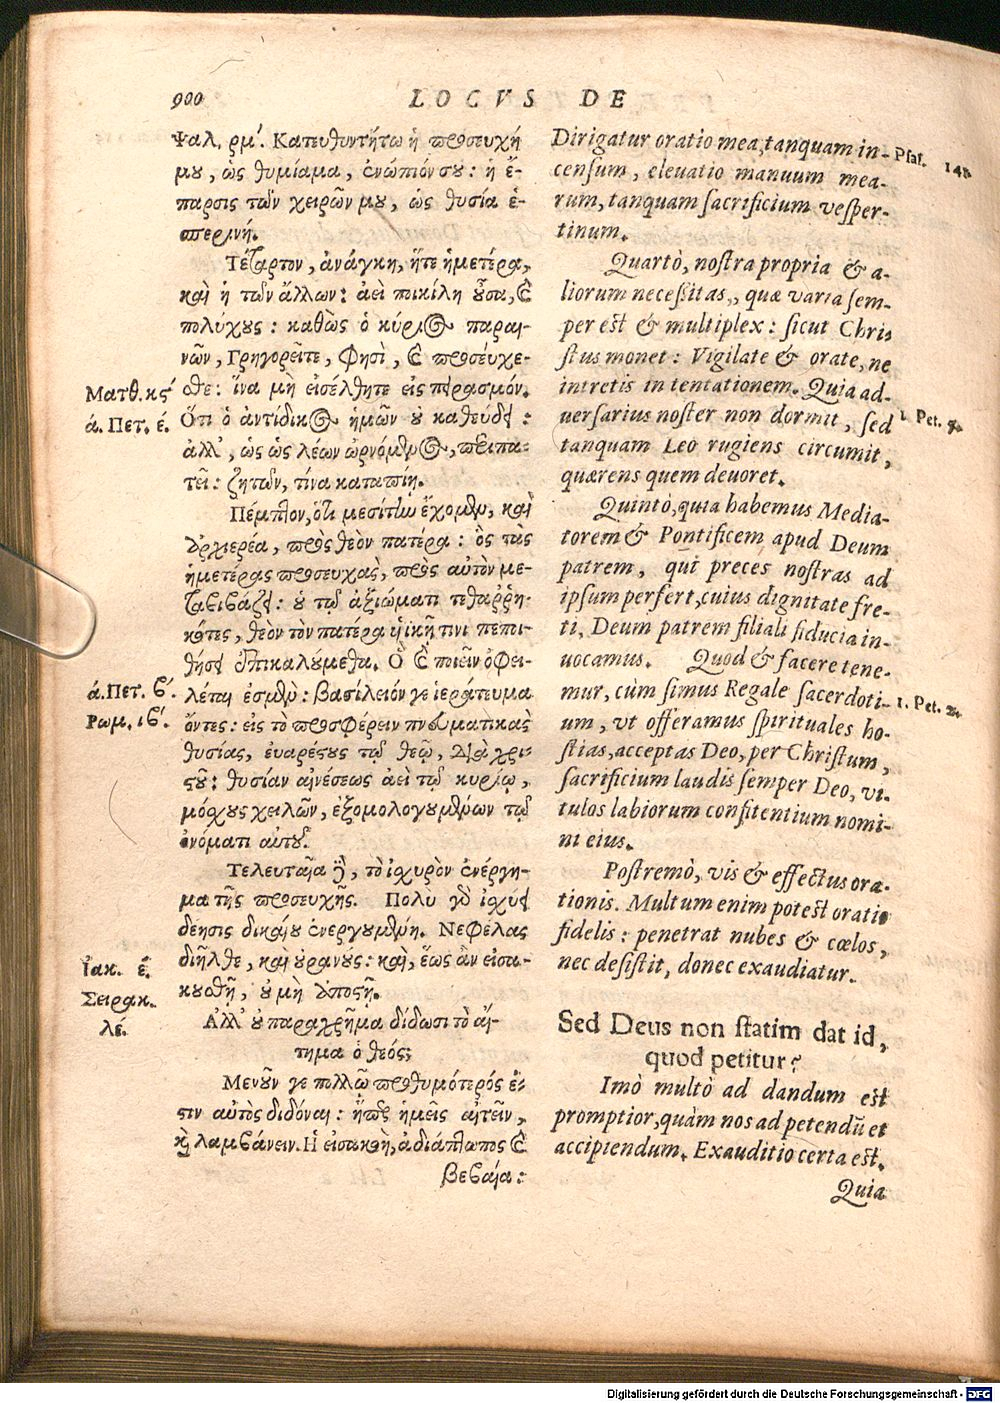 900
LOCVS DE
Ψαλ. ρμʹ. Κατευθυντήτω ἡ προσευχή
μου, ὡς θυμίαμα, ἐνώπιόν σου: ἡ ἔ-
παρσις τῶν χειρῶν μου, ὡς θυσία ἑ-
σπερινή.
Τέταρτον, ἀνάγκη, ἥτε ἡμετέρα,
καὶ ἡ τῶν ἄλλων: ἀεὶ ποικίλη οὖσα, καὶ
πολύχους: καθὼς ὁ κύριος παραι-
νῶν, Γρηγορεῖτε, φησὶ, καὶ προσεύχε-
σθε: ἵνα μὴ εἰσέλθητε εἰς πειρασμόν.
Ματθ. κςʹ
Ὅτι ὁ ἀντίδικος ἡμῶν οὐ καθεύδει:
ά. Πετ. έ.
ἀλλ’, ὡς ὡς λέων ὠρυόμενος, περιπα-
τεῖ: ζητῶν, τίνα καταπίῃ.
Πέμπτον, ὅτι μεσίτην ἔχομεν, καὶ
ἀρχιερέα, πρὸς θεὸν πατέρα: ὃς τὰς
ἡμετέρας προσευχὰς, πρὸς αὐτὸν με-
ταβιβάζει: οὗ τῷ ἀξιώματι τεθαῤῥη-
κότες, θεὸν τὸν πατέρα υἱϊκῇ τινι πεποι-
θήσει ἐπικαλούμεθα. Ὃ καὶ ποιεῖν ὀφει-
ά. Πετ. βʹ.
λέται ἐσμὲν: βασίλειόν γε ἱεράτευμα
Ρωμ. ιβʹ.
ὄντες: εἰς τὸ προσφέρειν πνευματικὰς
θυσίας, εὐαρέστους τῷ θεῷ, διὰ χρι-
στοῦ: θυσίαν αἰνέσεως ἀεὶ τῷ κυρίῳ,
μόσχους χειλῶν, ἐξομολογουμένων τῷ
ὀνόματι αὐτοῦ.
Τελευταῖα δὲ, τὸ ἰσχυρὸν ἐνέργη-
μα τῆς προσευχῆς. Πολὺ γὰρ ἰσχύει
δέησις δικαίου ἐνεργουμένη. Νεφέλας
Ἰακ. έ.
διῆλθε, καὶ οὐρανούς: καὶ, ἕως ἂν εἰσα-
Σειρακ.
κουσθῇ, οὐ μὴ ἀποστῇ.
λέ.
Ἀλλ’ οὐ παραχρῆμα δίδωσι τὸ αἴ-
τημα ὁ θεός;
Μενοῦν γε πολλῷ προθυμότερός ἐ-
στιν αὐτὸς διδόναι: ἤπερ ἡμεῖς αἰτεῖν,
καὶ λαμβάνειν. Ἡ εἰσακοὴ, ἀδιάπτωτος καὶ
βεβαία:
Dirigatur oratio mea, tanquam in-
Psal. 140.
censum, eleuatio manuum mea-
rum, tanquam sacrificium vesper-
tinum.
Quartò, nostra propria & a-
liorum necessitas, quæ varia sem-
per est & multiplex: sicut Chri-
stus monet: Vigilate & orate, ne
intretis in tentationem. Quia ad-
uersarius noster non dormit, sed
1. Pet. 5.
tanquam Leo rugiens circumit,
quærens quem deuoret.
Quintò, quia habemus Media-
torem & Pontificem apud Deum
patrem, qui preces nostras ad
ipsum perfert, cuius dignitate fre-
ti, Deum patrem filiali fiducia in-
uocamus. Quod & facere tene-
mur, cùm simus Regale sacerdoti-
1. Pet. 2.
um, vt offeramus spirituales ho-
stias, acceptas Deo, per Christum,
sacrificium laudis semper Deo, vi-
tulos labiorum confitentium nomi-
ni eius.
Postremò, vis & effectus ora-
tionis. Multum enim potest oratio
fidelis: penetrat nubes & cœlos,
nec desistit, donec exaudiatur.
Sed Deus non statim dat id,
quod petitur?
Imò multò ad dandum est
promptior, quàm nos ad petendũ et
accipiendum. Exauditio certa est.
Quia
Digitalisierung gefördert durch die Deutsche Forschungsgemeinschaft - DFG